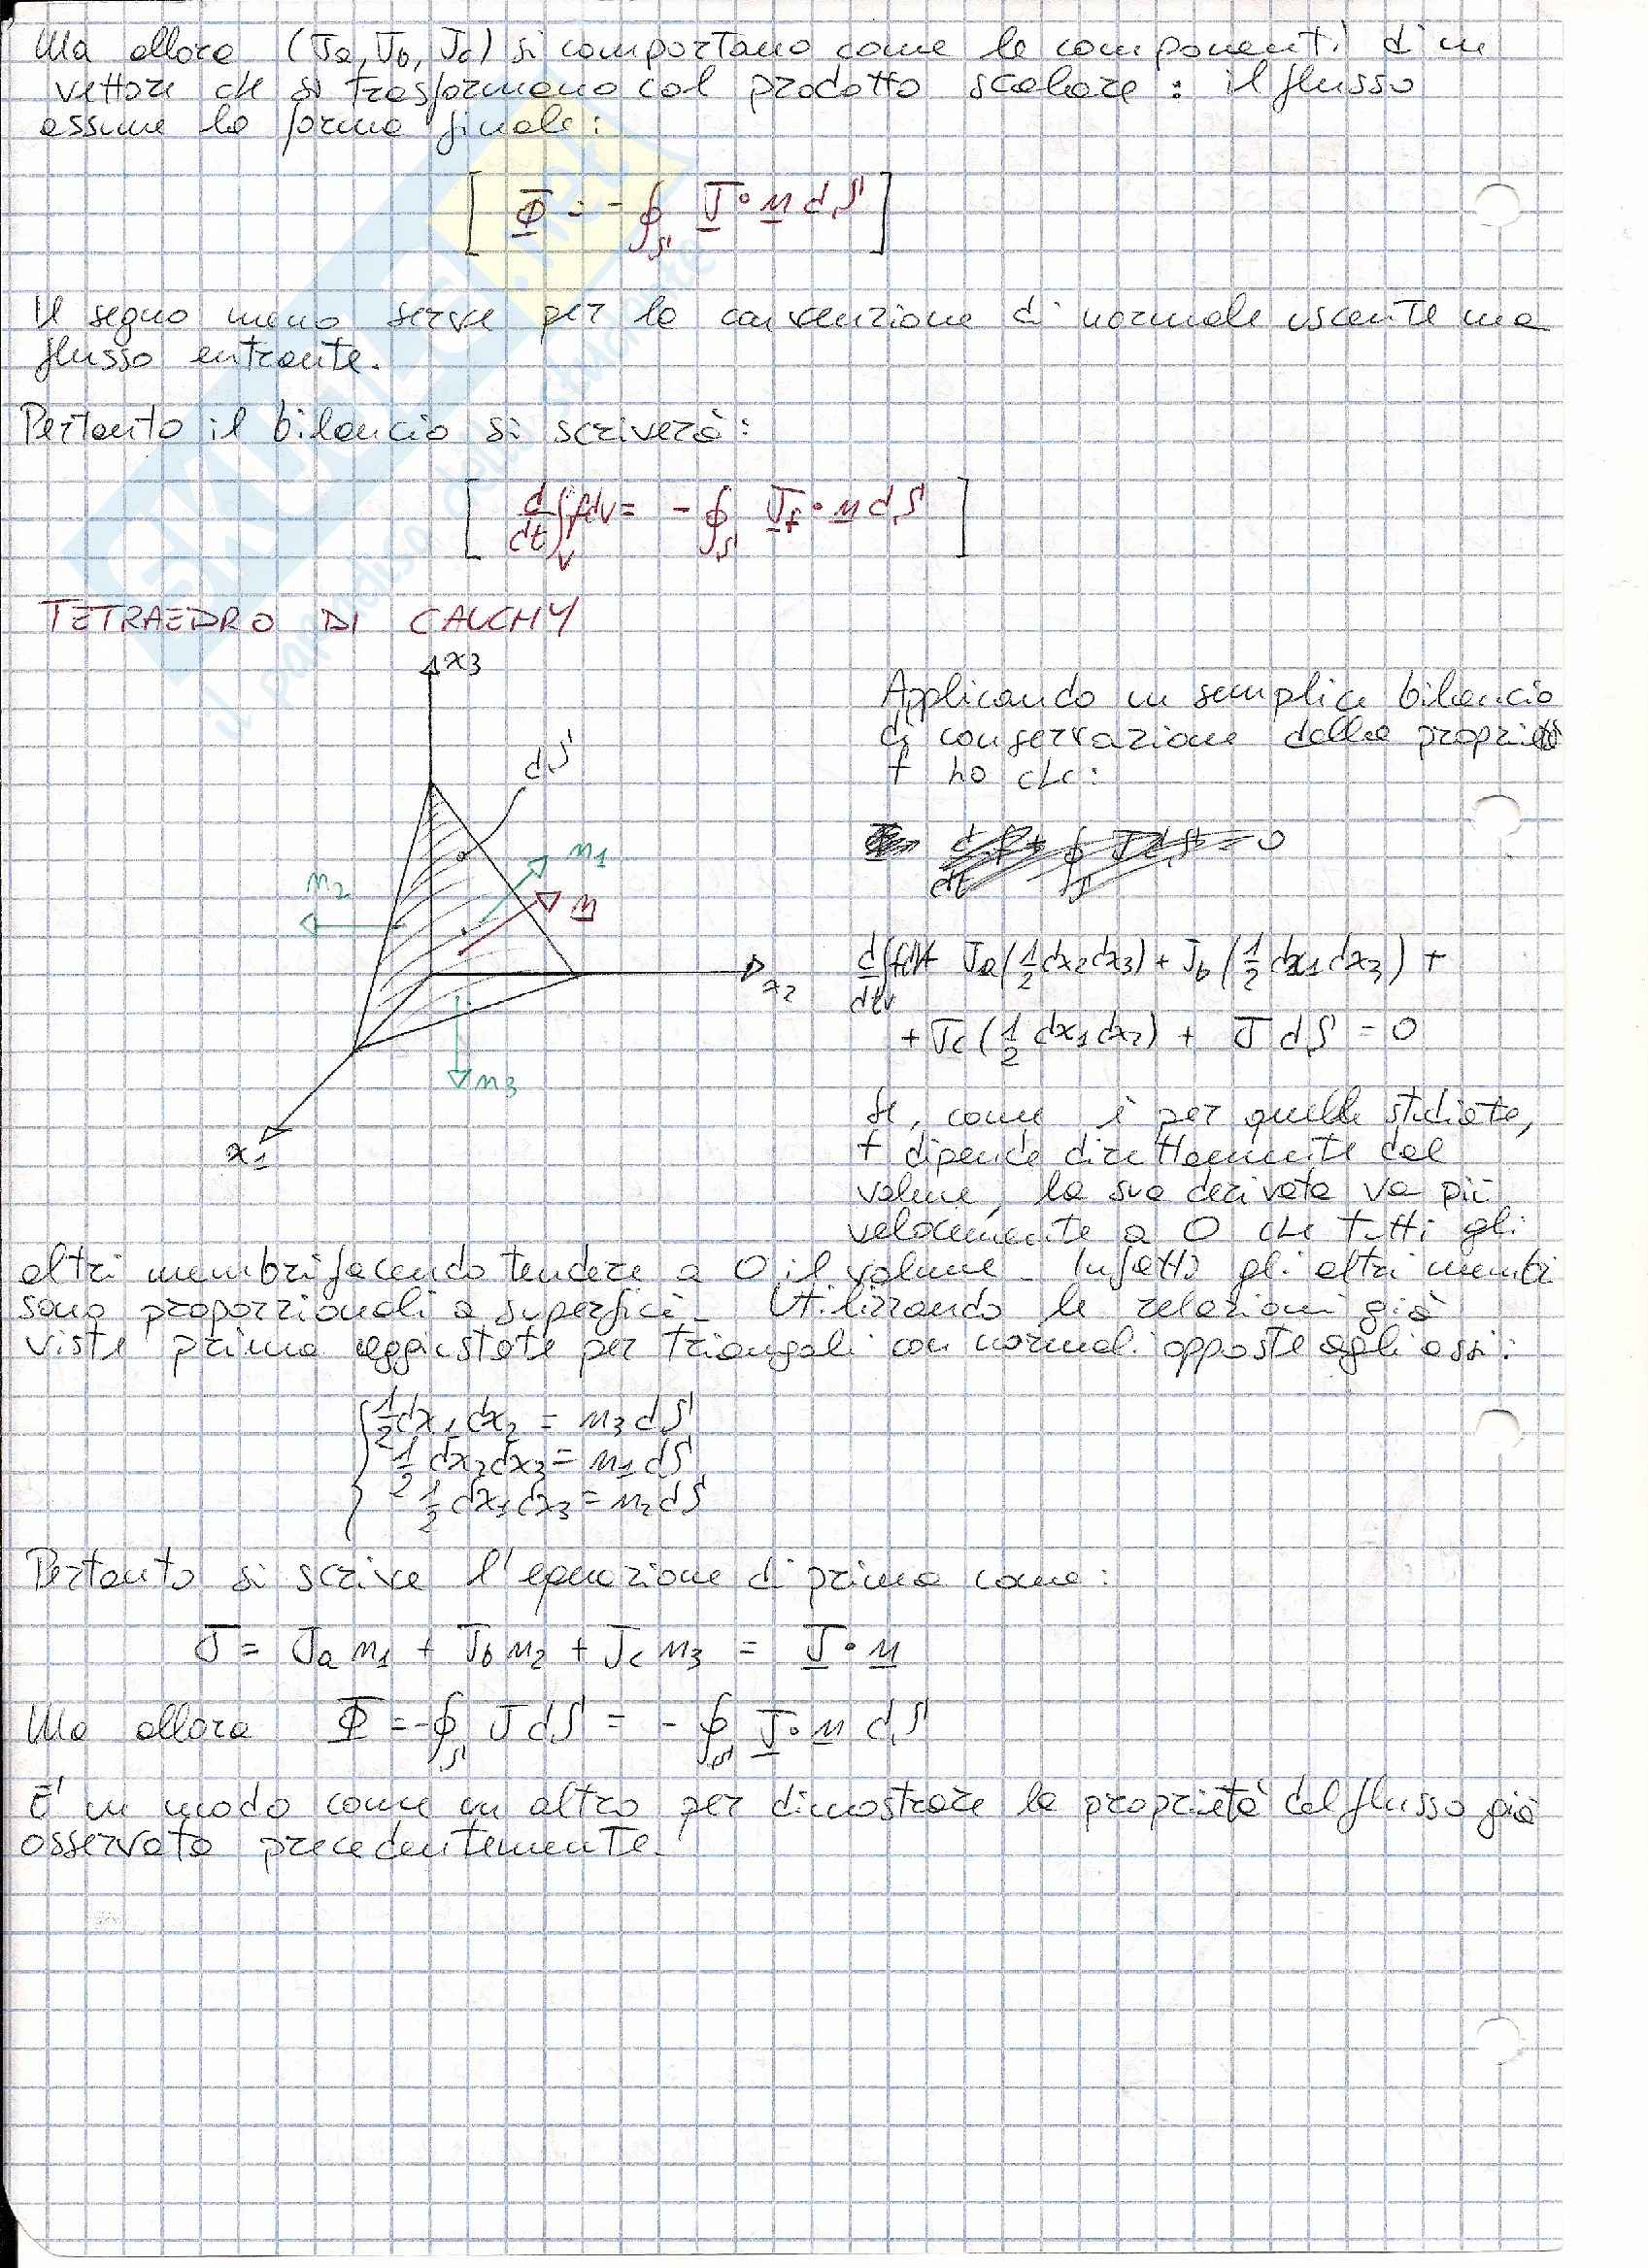 Ma allora (Ja, Jb, Jc) si comportano come le componenti di un
vettore che si trasformano col prodotto scalare: il flusso
assume la forma finale:
[ Φ = - ∮_S J · n dS ]
Il segno meno serve per la convenzione di normale uscente ma
flusso entrante.
Pertanto il bilancio si scriverà:
[ d/dt ∫_V f dv = - ∮_S J_f · n dS ]
TETRAEDRO DI CAUCHY
x3
dS
n1
n2
n
x2
n3
x1
Applicando un semplice bilancio
di conservazione della proprietà
f ho che:
= 0
d/dt ∫_V f dV + Ja (1/2 dx2 dx3) + Jb (1/2 dx1 dx3) +
+ Jc (1/2 dx1 dx2) + J dS = 0
Se, come è per quelle studiate,
f dipende direttamente dal
volume, la sua derivata va più
velocemente a 0 che tutti gli
altri membri facendo tendere a 0 il volume. Infatti gli altri membri
sono proporzionali a superfici. Utilizzando le relazioni già
viste prima aggiustate per triangoli con normali opposte agli assi:
{ 1/2 dx1 dx2 = n3 dS
1/2 dx2 dx3 = n1 dS
1/2 dx1 dx3 = n2 dS
Pertanto si scrive l'equazione di prima come:
J = Ja n1 + Jb n2 + Jc n3 = J · n
Ma allora Φ = - ∮_S J dS = - ∮_S J · n dS
E' un modo come un altro per dimostrare la proprietà del flusso già
osservata precedentemente.